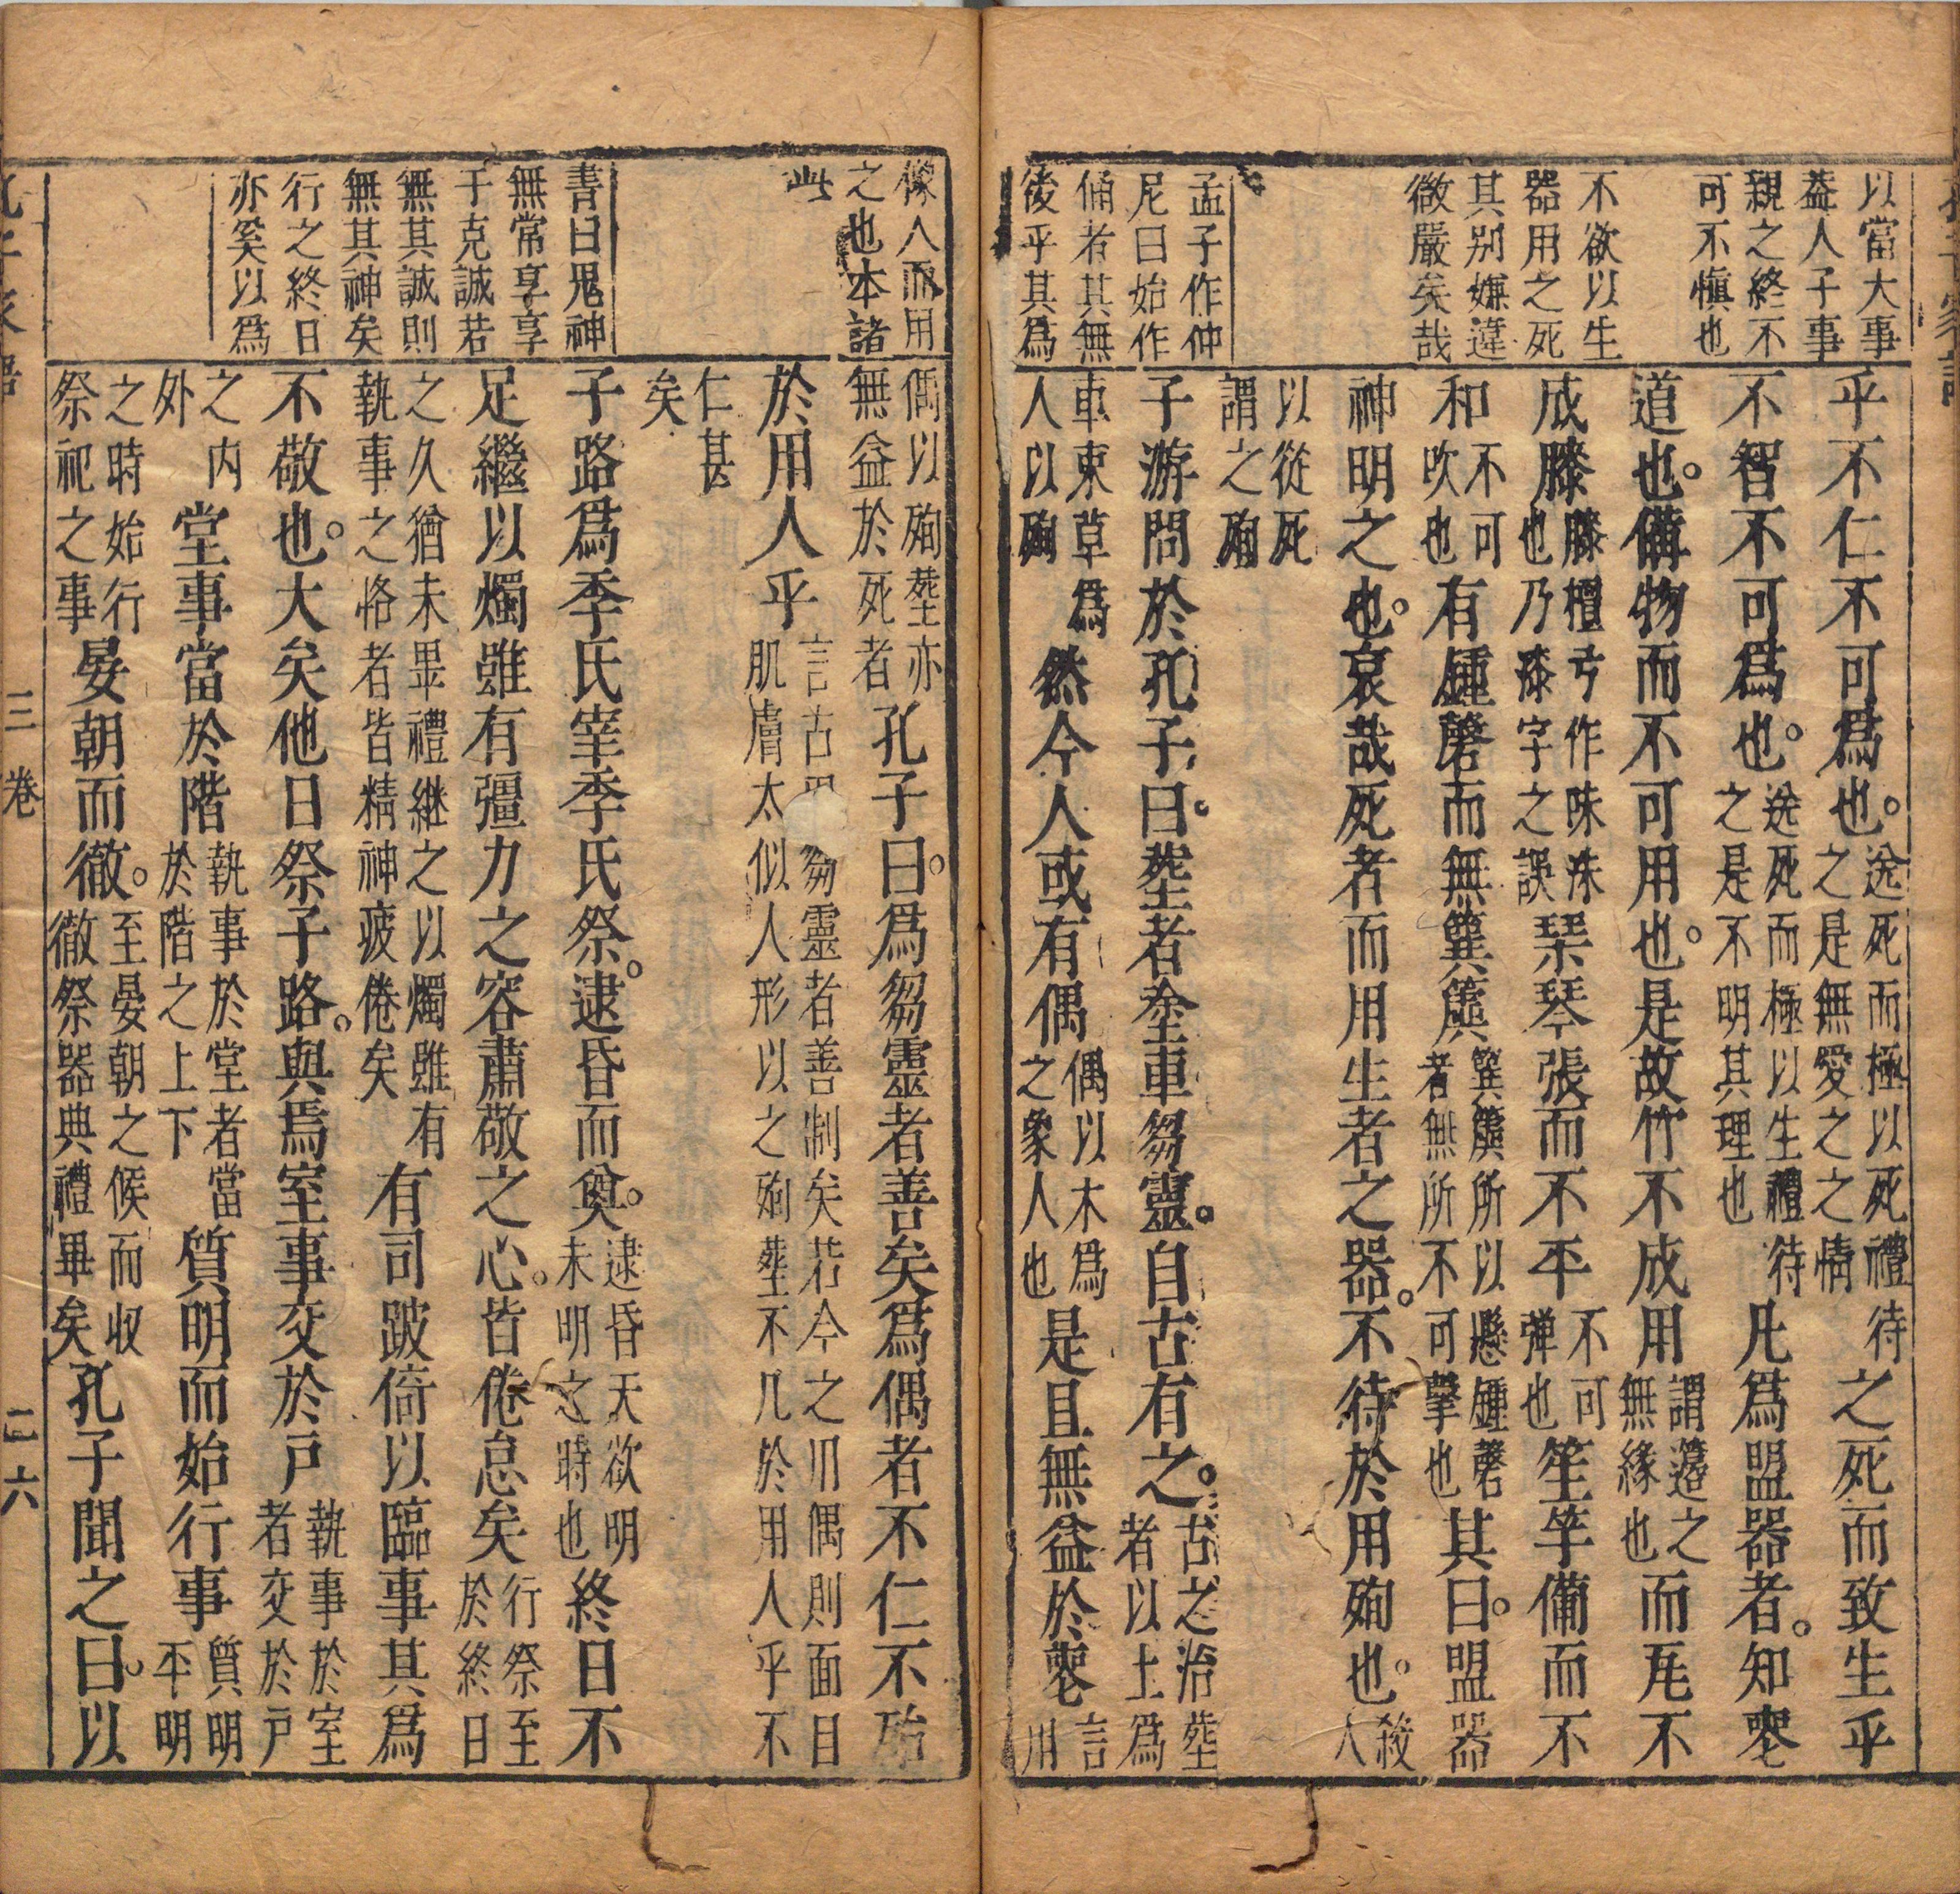 以當大事
葢人子事
親之終不
可不愼也
不欲以生
器用之死
其別嫌違
微嚴矣哉
孟子作仲
尼曰始作
俑者其無
後乎其爲
乎不仁不可爲也。送死而極以死禮待之是無愛之之情之死而致生乎
不智不可爲也。送死而極以生禮待之是不明其理也凡爲盟器者。知喪
道也。備物而不可用也。是故竹不成用謂籩之無緣也而瓦不
成膝膝檀弓作味沬也乃漆字之誤琹琴張而不平不可彈也笙竽備而不
和不可吹也有鍾磬而無簨簴簨簴所以懸鍾磬者無所不可擊也其曰。盟器
神明之也。哀哉死者而用生者之器。不待於用殉也。殺人
以從死謂之殉
子游問於孔子曰。塟者塗車芻靈。自古有之。古之治塟者以土爲
車束草爲人以殉然今人或有偶偶以木爲之象人也是且無益於喪言用
像人而用
之也本諸
此
書曰鬼神
無常享享
于克誠若
無其誠則
無其神矣
行之終日
亦奚以爲
偶以殉塟亦無益於死者孔子曰。爲芻靈者善矣爲偶者不仁不殆
於用人乎言古芻靈者善制矣若今之用偶則面目肌膚太似人形以之殉塟不几於用人乎不
仁甚矣
子路爲季氏宰季氏祭。逮昏而奠。逮昏天欲明未明之時也終日不
足繼以燭雖有彊力之容肅敬之心。皆倦怠矣行祭至於終日
之久猶未畢禮継之以燭雖有執事之恪者皆精神疲倦矣有司跛倚以臨事其爲
不敬也。大矣他日祭子路。與焉室事交於戶執事於室者交於戶
之内外堂事當於階執事於堂者當於階之上下質明而始行事質明平明
之時始行祭祀之事晏朝而徹。至晏朝之候而収徹祭器典禮畢矣孔子聞之曰。以
三卷
二六